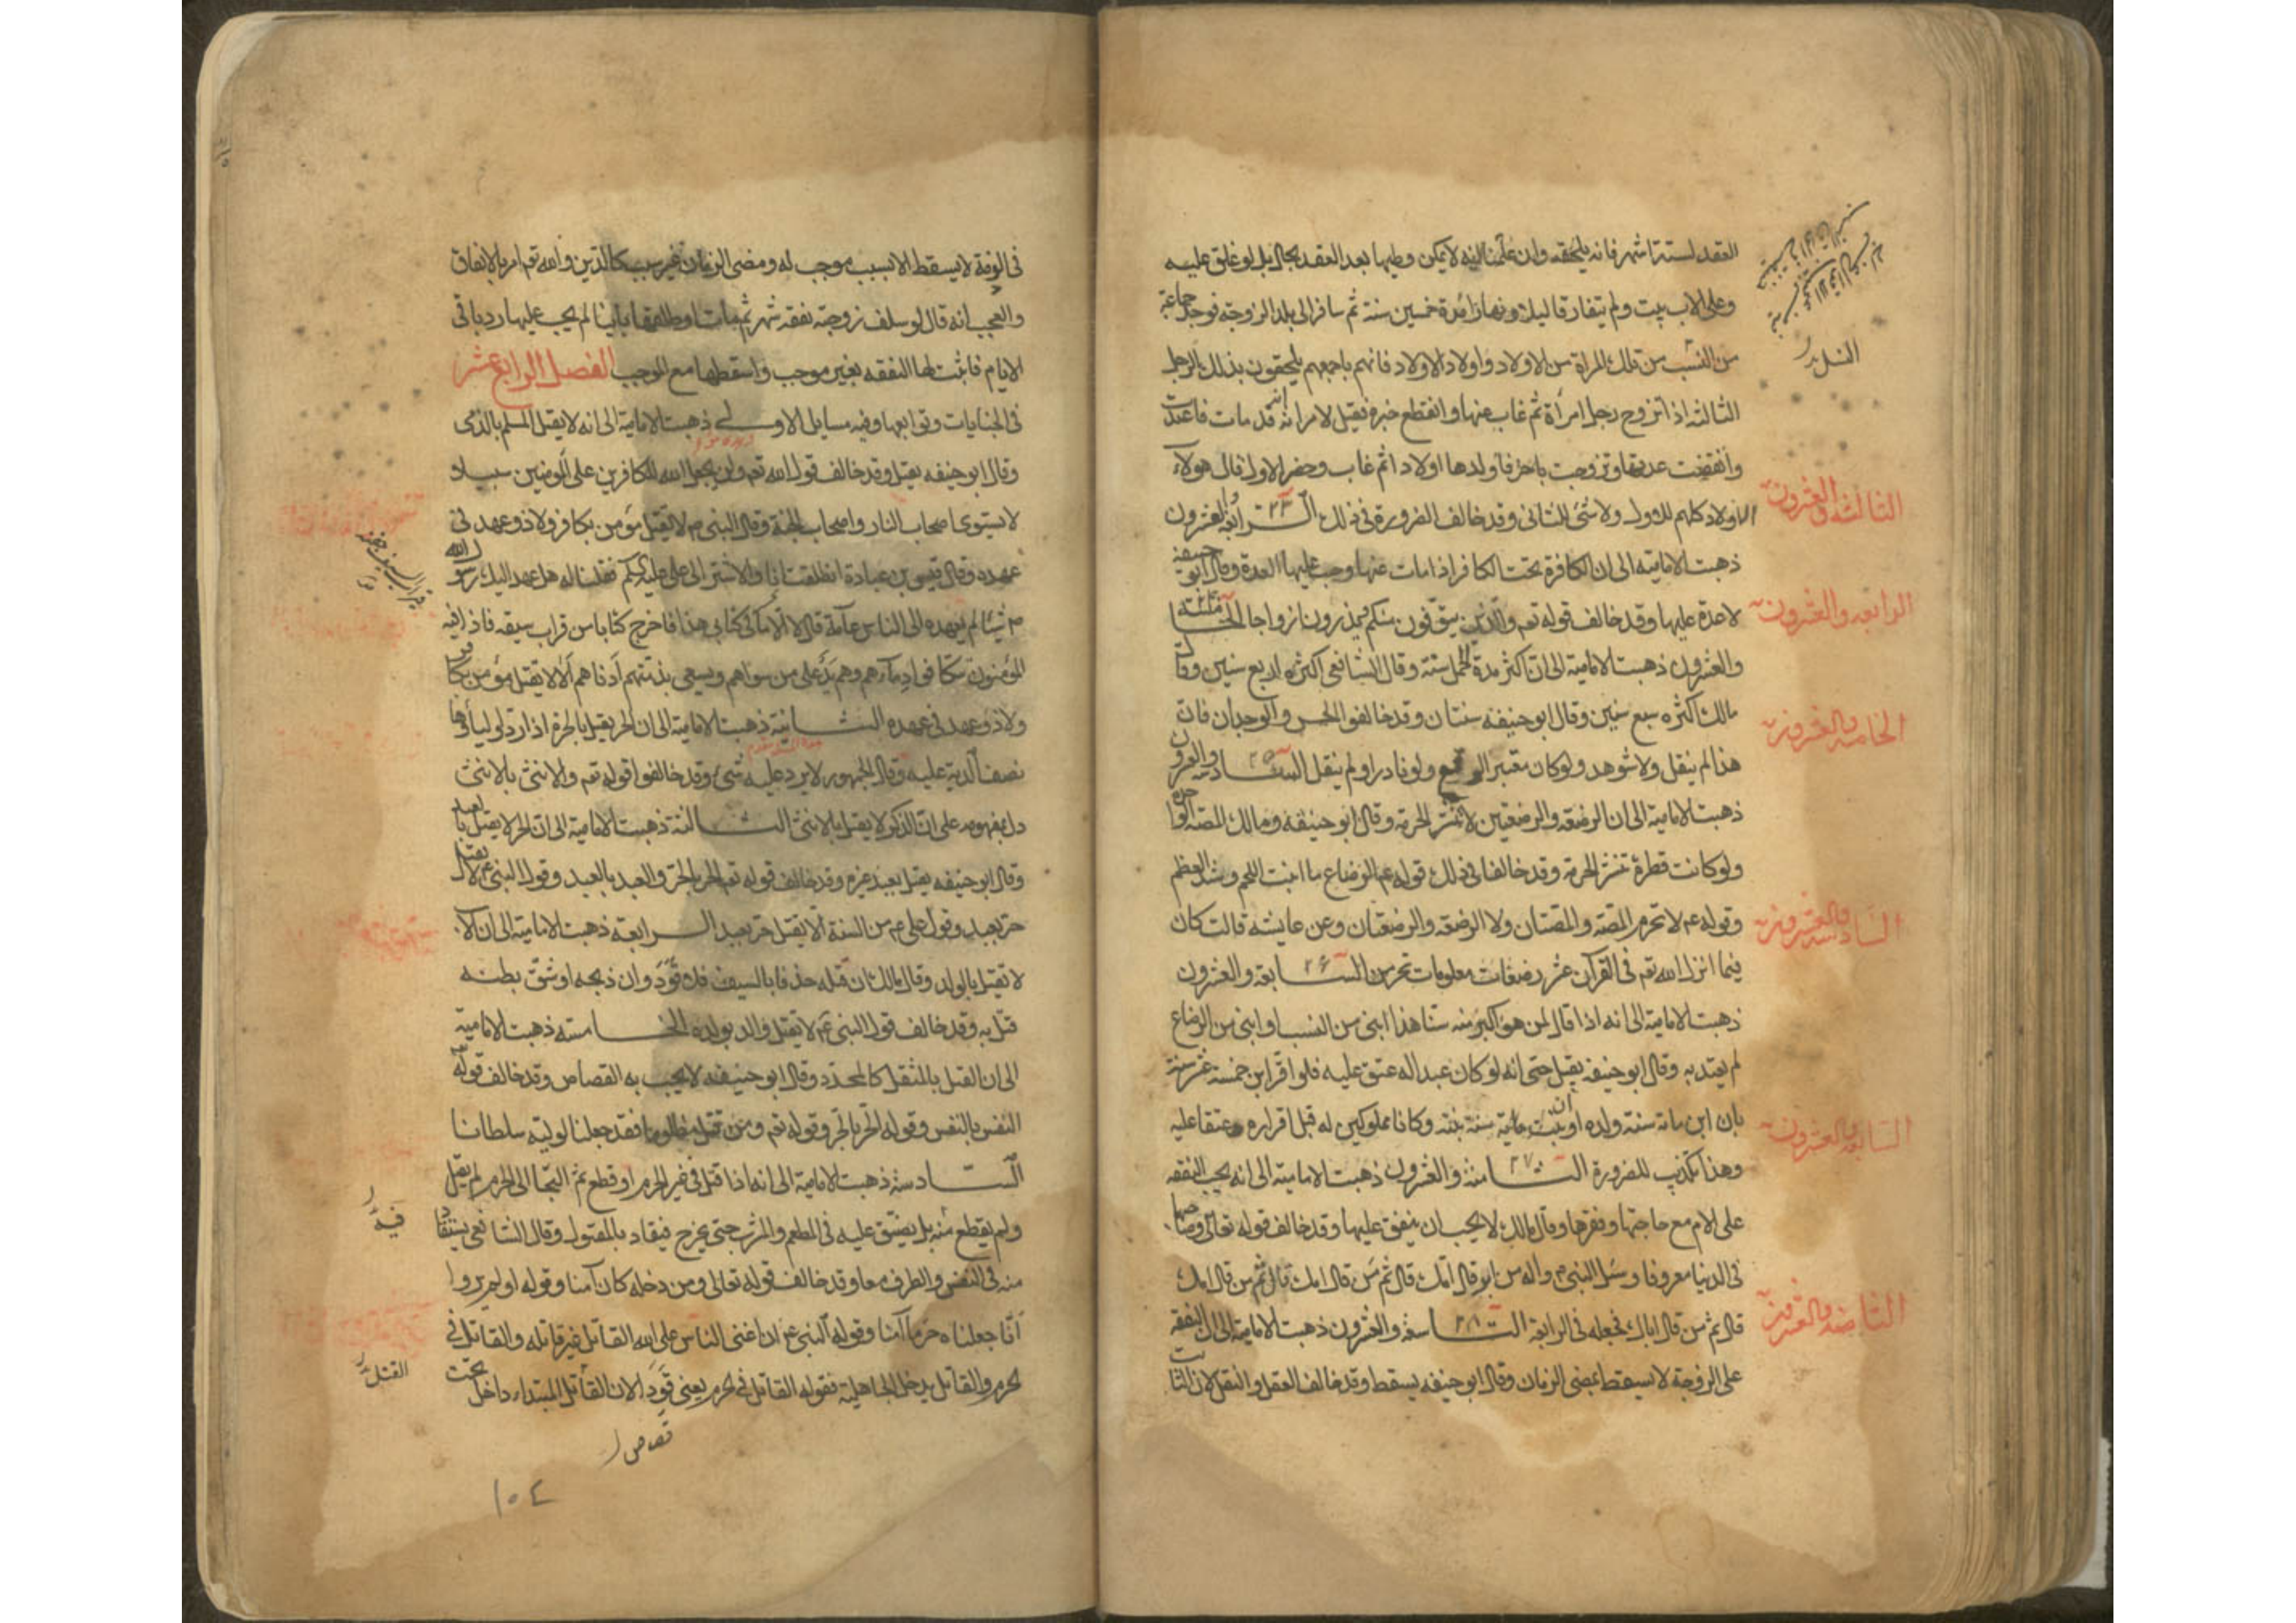 العقد لستة اشهر فانه يلحقه وان علمنا انه لا يمكن وطيها بعد العقد بحال بل لو غلق عليه
وعلى الاب بيت ولم يتفارقا ليلا ونهارا مدة خمسين سنة ثم سافر الى بلد الزوجة فوجد جماعة
من النسب من تلك المراة من الاولاد واولاد الاولاد فانهم باجمعهم يلحقون بذلك الرجل
الثالثه اذا تزوج رجل امرأة ثم غاب عنها وانقطع خبره فقيل لامراته انه قد مات فاعتدت
وانقضت عدتها وتزوجت باخر فاولدها اولادا ثم غاب وحضر الاول فقال هولاء
الاولاد كلهم للاول ولا شئ للثانى وقد خالف الضرورة فى ذلك الرابعة والعشرون
ذهبت الامامية الى ان الكافرة تحت الكافر اذا مات عنها وجب عليها العدة وقال ابو حنيفة
لا عدة عليها وقد خالف قوله تعم والذين يتوفون منكم ويذرون ازواجا الخامسة
والعشرون ذهبت الامامية الى ان اكثر مدة الحمل سنة وقال الشافعى اكثره اربع سنين وقال
مالك اكثره سبع سنين وقال ابو حنيفة سنتان وقد خالفوا الحس والوجدان فان
هذا لم ينقل ولا شوهد ولو كان معتبر الوقوع ولو نادرا ولم ينقل السادسة والعشرون
ذهبت الامامية الى ان الرضعة والرضعتين لا تنشر الحرمة وقال ابو حنيفه ومالك المصة الواحدة
ولو كانت قطرة تنشر الحرمة وقد خالفا فى ذلك قوله عم الرضاع ما انبت اللحم وشد العظم
وقوله عم لا تحرم المصة والمصتان ولا الرضعة والرضعتان وعن عايشه قالت كان
فيما انزل الله تعم فى القرآن عشر رضعات معلومات تحرمن السابعة والعشرون
ذهبت الامامية الى انه اذا قال لمن هو اكبر منه سنا هذا ابنى من النسب او ابنى من الرضاع
لم يعتد به وقال ابو حنيفة يقبل حتى انه لو كان عبدا له عتق عليه فلو اقر ابن خمسة عشر سنة
بان ابن مائة سنة ولده او ان بنت مائة سنة بنته وكانا مملوكين له قبل اقراره وعتقا عليه
وهذا تكذيب للضرورة الثامنة والعشرون ذهبت الامامية الى انه يجب النفقه
على الام مع حاجتها وفقرها وقال مالك لا يجب ان ينفق عليها وقد خالف قوله تعالى وصاحبهما
فى الدنيا معروفا وسئل النبى م واله من ابر قال امك قال ثم من قال امك قال ثم من قال امك
قال ثم من قال اباك فجعله فى الرابعة التاسعة والعشرون ذهبت الامامية الى ان النفقه
على الزوجة لا تسقط بمضى الزمان وقال ابو حنيفه يسقط وقد خالف العقل والنقل لان الثابت
الثالثة والعشرون
الرابعه والعشرون
الخامسه والعشرون
السادسه والعشرون
السابعه والعشرون
الثامنه والعشرون
النسل
فى الذمة لا يسقط الا بسبب موجب له ومضى الزمان غير سبب كالدين والله تعم امر بالانفاق
والعجب انه قال لو سلف زوجته نفقه شهر ثم مات او طلقها باينا لم يجب عليها رد باقى
الايام فاثبت لها النفقه بغير موجب واسقطها مع الموجب الفصل الرابع عشر
فى الجنايات وتوابعها وفيه مسايل الاولى ذهبت الامامية الى انه لا يقتل المسلم بالذمى
وقال ابو حنيفه يقتل وقد خالف قول الله تعم ولن يجعل الله للكافرين على المؤمنين سبيلا
لا يستوى اصحاب النار واصحاب الجنة وقال النبى م لا يقتل مؤمن بكافر ولا ذو عهد فى
عهده وقال قيس بن عبادة انطلقت انا والاشتر الى على عليه السلم فقلنا له هل عهد اليك رسول الله
م شيئا لم يعهده الى الناس عامة قال لا الا ما فى كتابى هذا فاخرج كتابا من قراب سيفه فاذا فيه
المؤمنون تتكافؤ دماؤهم وهم يد على من سواهم ويسعى بذمتهم ادناهم الا لا يقتل مؤمن بكافر
ولا ذو عهد فى عهده الثانية ذهبت الامامية الى ان الحر يقتل بالحرة اذا رد اولياؤها
نصف الدية عليه وقال الجمهور لا يرد عليه شئ وقد خالفوا قوله تعم والانثى بالانثى
دل بمفهومه على ان الذكر لا يقتل بالانثى الثالثة ذهبت الامامية الى ان الحر لا يقتل بالعبد
وقال ابو حنيفه يقتل بعبد غيره وقد خالف قوله تعم الحر بالحر والعبد بالعبد وقول النبى عم لا يقتل
حر بعبد وقول على عم من السنة الا يقتل حر بعبد الرابعة ذهبت الامامية الى ان الاب
لا يقتل بالولد وقال مالك ان قتله حذفا بالسيف فلا قود وان ذبحه او شق بطنه
قتل به وقد خالف قول النبى عم لا يقتل والد بولده الخامسه ذهبت الامامية
الى ان القتل بالمثقل كالمحدد وقال ابو حنيفه لا يجب به القصاص وقد خالف قوله تعم
النفس بالنفس وقوله الحر بالحر وقوله تعم ومن قتل مظلوما فقد جعلنا لوليه سلطانا
السادسة ذهبت الامامية الى انه اذا قتل فى غير الحرم او قطع ثم التجا الى الحرم لم يقتل
ولم يقطع منه بل يضيق عليه فى المطعم والمشرب حتى يخرج فيقاد بالمقتول وقال الشافعى يستقاد
منه فى النفس والطرف معا وقد خالف قوله تعالى ومن دخله كان آمنا وقوله اولم يروا
انا جعلناه حرما آمنا وقوله النبى عم ان اعتى الناس على الله القاتل غير قاتله والقاتل فى
الحرم والقاتل بدخل الجاهلية فقوله القاتل فى الحرم يعنى قودا لان القاتل المبتداء داخل تحت
فيه
القتل
قصاص
١٥٤